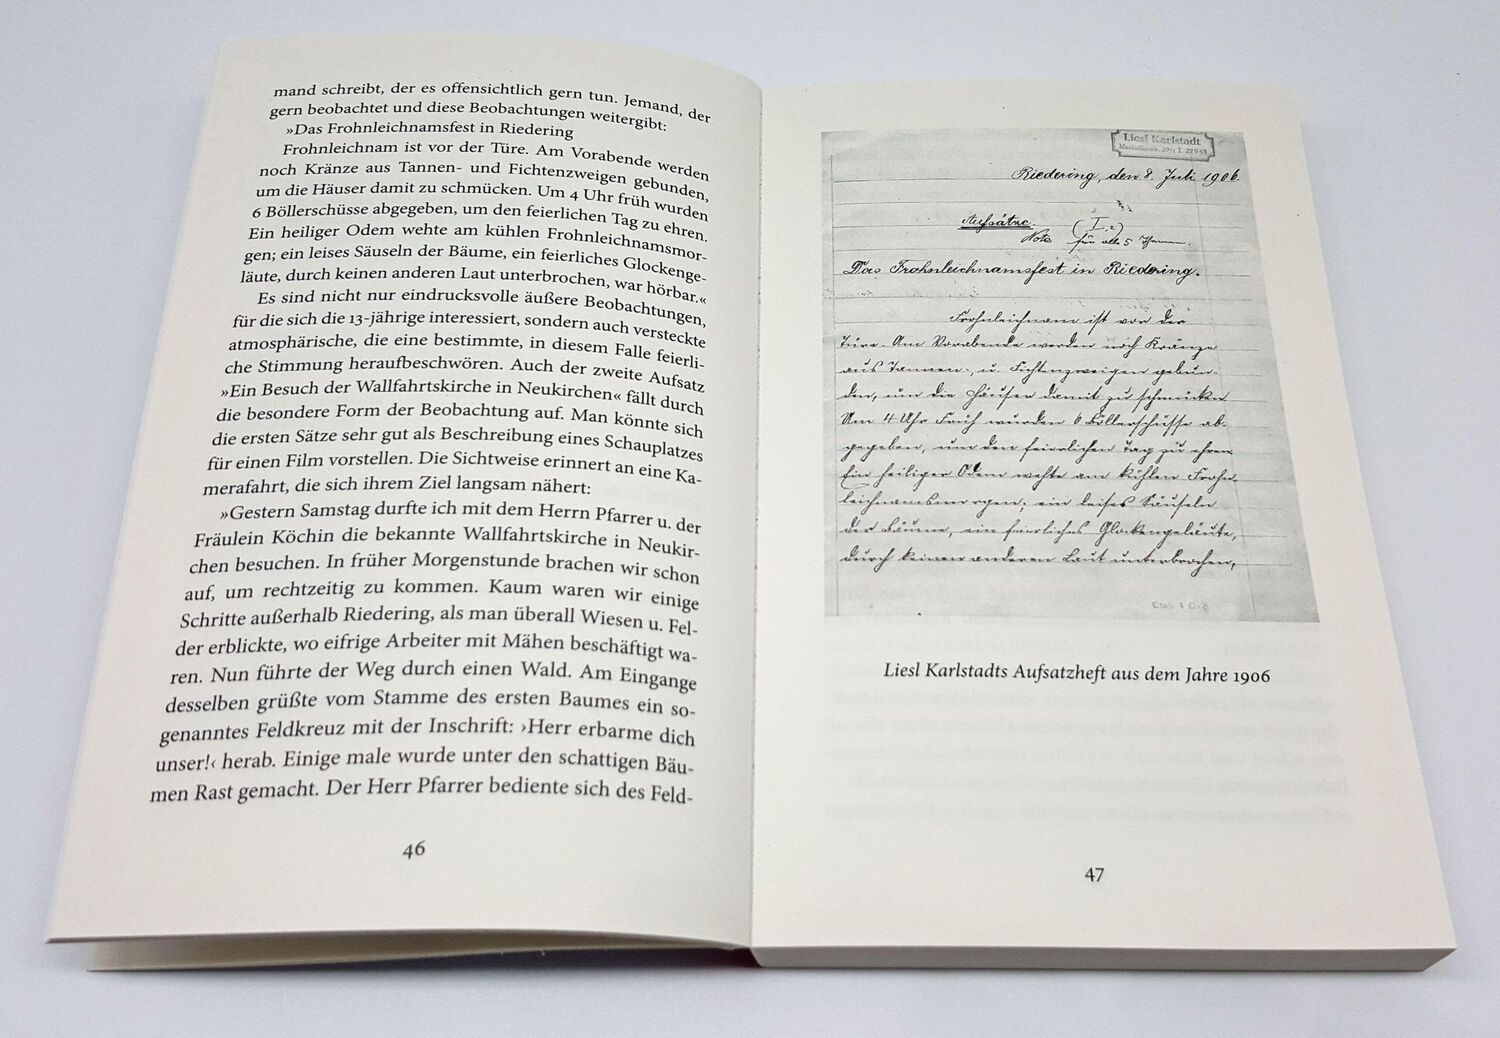 mand schreibt, der es offensichtlich gern tun. Jemand, der
gern beobachtet und diese Beobachtungen weitergibt:
»Das Frohnleichnamsfest in Riedering
Frohnleichnam ist vor der Türe. Am Vorabende werden
noch Kränze aus Tannen- und Fichtenzweigen gebunden,
um die Häuser damit zu schmücken. Um 4 Uhr früh wurden
6 Böllerschüsse abgegeben, um den feierlichen Tag zu ehren.
Ein heiliger Odem wehte am kühlen Frohnleichnamsmor-
gen; ein leises Säuseln der Bäume, ein feierliches Glockenge-
läute, durch keinen anderen Laut unterbrochen, war hörbar.«
Es sind nicht nur eindrucksvolle äußere Beobachtungen,
für die sich die 13-jährige interessiert, sondern auch versteckte
atmosphärische, die eine bestimmte, in diesem Falle feierli-
che Stimmung heraufbeschwören. Auch der zweite Aufsatz
»Ein Besuch der Wallfahrtskirche in Neukirchen« fällt durch
die besondere Form der Beobachtung auf. Man könnte sich
die ersten Sätze sehr gut als Beschreibung eines Schauplatzes
für einen Film vorstellen. Die Sichtweise erinnert an eine Ka-
merafahrt, die sich ihrem Ziel langsam nähert:
»Gestern Samstag durfte ich mit dem Herrn Pfarrer u. der
Fräulein Köchin die bekannte Wallfahrtskirche in Neukir-
chen besuchen. In früher Morgenstunde brachen wir schon
auf, um rechtzeitig zu kommen. Kaum waren wir einige
Schritte außerhalb Riedering, als man überall Wiesen u. Fel-
der erblickte, wo eifrige Arbeiter mit Mähen beschäftigt wa-
ren. Nun führte der Weg durch einen Wald. Am Eingange
desselben grüßte vom Stamme des ersten Baumes ein so-
genanntes Feldkreuz mit der Inschrift: ›Herr erbarme dich
unser!‹ herab. Einige male wurde unter den schattigen Bäu-
men Rast gemacht. Der Herr Pfarrer bediente sich des Feld-
46
Liesl Karlstadt
Riedering, den 8. Juli 1906.
Aufsätze.
Note
für alle 5 Themen.
Das Frohnleichnamsfest in Riedering.
Frohnleichnam ist vor der
Türe. Am Vorabende werden noch Kränze
aus Tannen-, u. Fichtenzweigen gebun-
den, um die Häuser damit zu schmücken
Um 4 Uhr früh wurden 6 Böllerschüsse ab-
gegeben, um den feierlichen Tag zu ehren
Ein heiliger Odem wehte am kühlen Frohn-
leichnamsmorgen; ein leises Säuseln
der Bäume, ein feierliches Glockengeläute,
durch keinen anderen Laut unterbrochen,
Liesl Karlstadts Aufsatzheft aus dem Jahre 1906
47